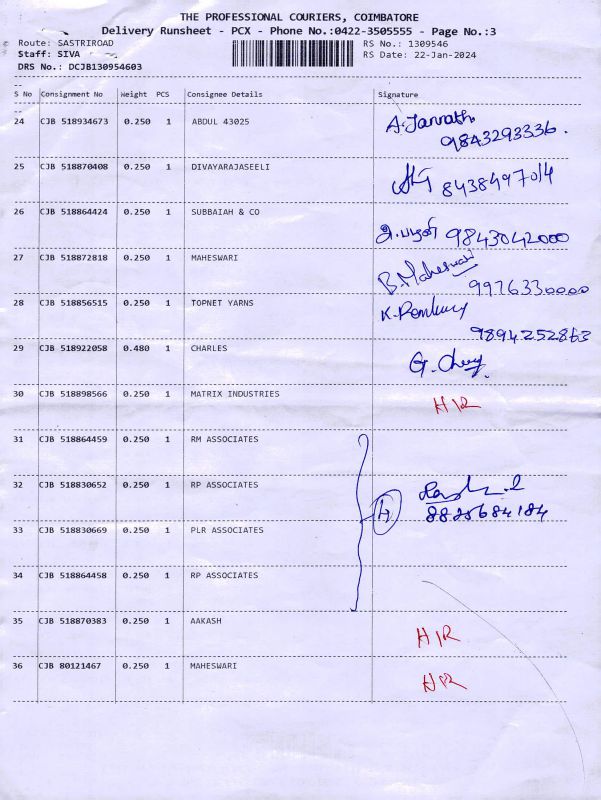 THE PROFESSIONAL COURIERS, COIMBATORE
Delivery Runsheet - PCX - Phone No.:0422-3505555 - Page No.:3
Route: SASTRIROAD RS No.: 1309546
Staff: SIVA RS Date: 22-Jan-2024
DRS No.: DCJB130954603
S No Consignment No Weight PCS Consignee Details Signature
24 CJB 518934673 0.250 1 ABDUL 43025 A. Jannath
9843293336.
25 CJB 518870408 0.250 1 DIVAYARAJASEELI 8438497014
26 CJB 518864424 0.250 1 SUBBAIAH & CO 9843042000
27 CJB 518872818 0.250 1 MAHESWARI B. Maheswari
9976330000
28 CJB 518856515 0.250 1 TOPNET YARNS
9894252863
29 CJB 518922058 0.480 1 CHARLES
30 CJB 518898566 0.250 1 MATRIX INDUSTRIES H/R
31 CJB 518864459 0.250 1 RM ASSOCIATES
32 CJB 518830652 0.250 1 RP ASSOCIATES
4 8825684184
33 CJB 518830669 0.250 1 PLR ASSOCIATES
34 CJB 518864458 0.250 1 RP ASSOCIATES
35 CJB 518870383 0.250 1 AAKASH H/R
36 CJB 80121467 0.250 1 MAHESWARI H/R